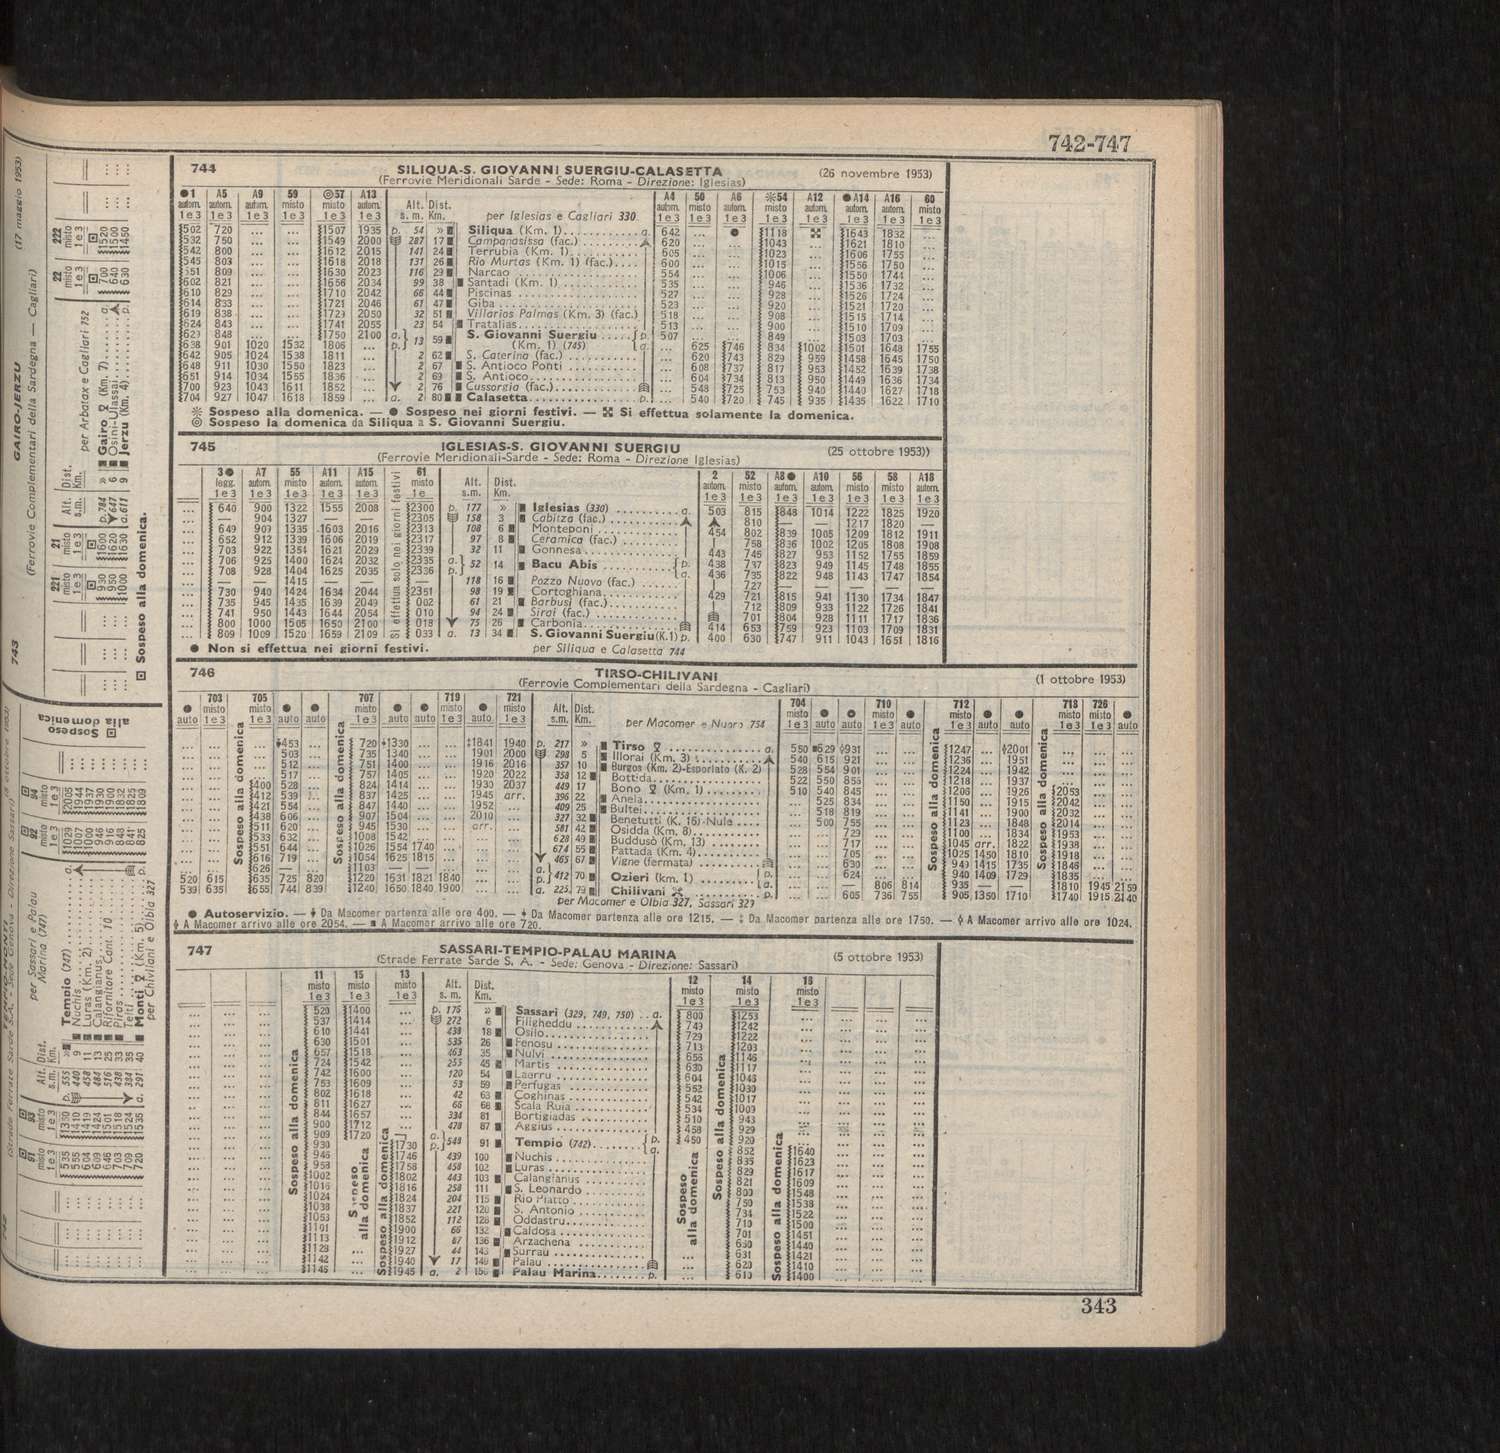 742-747
744
SILIQUA-S. GIOVANNI SUERGIU-CALASETTA
(26 novembre 1953)
(Ferrovie Meridionali Sarde - Sede: Roma - Direzione: Iglesias)
●1 A5 A9 59 ◎57 A13
autom. autom. autom. misto misto autom.
Alt. s. m. Dist. Km. per Iglesias e Cagliari 330
A4 50 A6 54 A12 ●A14 A16 60
502 720 ... ... 1507 1935 p. 54 » Siliqua (Km. 1) a. 642 ... ● 1118 1643 1832 ...
532 750 ... ... 1549 2000 287 17 Campanasissa (fac.) 620 ... ... 1043 ... 1621 1810 ...
542 800 ... ... 1612 2015 141 24 Terrubia (Km. 1) 605 ... ... 1023 ... 1606 1755 ...
545 803 ... ... 1618 2018 131 26 Rio Murtas (Km. 1) (fac.) 600 ... ... 1015 ... 1556 1750 ...
551 809 ... ... 1630 2023 116 29 Narcao 554 ... ... 1006 ... 1550 1744 ...
602 821 ... ... 1656 2034 99 38 Santadi (Km. 1) 535 ... ... 946 ... 1536 1732 ...
610 829 ... ... 1710 2042 66 44 Piscinas 527 ... ... 928 ... 1526 1724 ...
614 833 ... ... 1721 2046 61 47 Giba 523 ... ... 920 ... 1521 1720 ...
619 838 ... ... 1729 2050 32 51 Villarios Palmas (Km. 3) (fac.) 518 ... ... 908 ... 1515 1714 ...
624 843 ... ... 1741 2055 23 54 Tratalias 513 ... ... 900 ... 1510 1709 ...
629 848 ... ... 1750 2100 a. 13 59 S. Giovanni Suergiu p. 507 ... ... 849 ... 1503 1703 ...
638 901 1020 1532 1806 ... p. (Km. 1) (745) a. ... 625 746 834 1002 1501 1648 1755
642 905 1024 1538 1811 ... 2 62 S. Caterina (fac.) ... 620 743 829 959 1458 1645 1750
648 911 1030 1550 1823 ... 2 67 S. Antioco Ponti ... 608 737 817 953 1452 1639 1738
651 914 1034 1555 1836 ... 2 69 S. Antioco ... 604 734 813 950 1449 1636 1734
700 923 1043 1611 1852 ... 2 76 Cussorgia (fac.) ... 548 725 753 940 1440 1627 1718
704 927 1047 1618 1859 ... a. 2 80 Calasetta p. ... 540 720 745 935 1435 1622 1710
Sospeso alla domenica. — ● Sospeso nei giorni festivi. — Si effettua solamente la domenica.
◎ Sospeso la domenica da Siliqua a S. Giovanni Suergiu.
745
IGLESIAS-S. GIOVANNI SUERGIU
(25 ottobre 1953))
(Ferrovie Meridionali-Sarde - Sede: Roma - Direzione Iglesias)
3● A7 55 A11 A15 61
Alt. s.m. Dist. Km.
2 52 A8● A10 56 58 A18
Si effettua solo nei giorni festivi
640 900 1322 1555 2008 2300 p. 177 » Iglesias (330) a. 503 815 848 1014 1222 1825 1920
— 904 1327 — — 2305 158 3 Cabitza (fac.) 810 — — 1217 1820 —
649 909 1335 1603 2016 2313 108 6 Monteponi 454 802 839 1005 1209 1812 1911
652 912 1339 1606 2019 2317 97 8 Ceramica (fac.) 758 836 1002 1205 1808 1908
703 922 1354 1621 2029 2339 32 11 Gonnesa 443 745 827 953 1152 1755 1859
706 925 1400 1624 2032 2335 a. 52 14 Bacu Abis p. 438 737 823 949 1145 1748 1855
708 928 1404 1625 2035 2336 p. a. 436 735 822 948 1143 1747 1854
— — 1415 — — — 118 16 Pozzo Nuovo (fac.) 727 — —
730 940 1424 1634 2044 2351 98 19 Cortoghiana 429 721 815 941 1130 1734 1847
735 945 1435 1639 2049 002 61 21 Barbusi (fac.) 712 809 933 1122 1726 1841
741 950 1443 1644 2054 010 94 24 Sirai (fac.) 701 804 928 1111 1717 1836
800 1000 1505 1650 2100 018 75 26 Carbonia 414 653 759 923 1103 1709 1831
809 1009 1520 1659 2109 033 a. 13 34 S. Giovanni Suergiu (K.1) p. 400 630 747 911 1043 1651 1816
● Non si effettua nei giorni festivi.
per Siliqua e Calasetta 744
746
TIRSO-CHILIVANI
(1 ottobre 1953)
(Ferrovie Complementari della Sardegna - Cagliari)
703 705 707 719 721
Alt. s.m. Dist. Km. per Macomer e Nuoro 754
704 710 712 718 726
Sospeso alla domenica
Sospeso alla domenica
453 720 1330 1841 1940 p. 217 » Tirso a. 550 629 931 1247 2001
503 735 1340 1901 2000 298 5 Illorai (Km. 3) 540 615 921 1236 1951
512 751 1400 1916 2016 357 10 Burgos (Km. 2)-Esporlato (K. 2) 528 554 901 1224 1942
517 757 1405 1920 2022 358 12 Bottida 522 550 855 1218 1937
400 528 824 1414 1930 2037 449 17 Bono (Km. 1) 510 540 845 1206 1926 2053
412 539 837 1425 1945 arr. 396 22 Anela 525 834 1150 1915 2042
421 554 847 1440 1952 409 25 Bultei 518 819 1141 1900 2032
438 606 907 1504 2010 327 32 Benetutti (K. 16)-Nule 500 755 1123 1848 2014
511 620 945 1530 arr. 581 42 Osidda (Km. 8) 729 1100 1834 1953
533 632 1008 1542 628 49 Buddusò (Km. 13) 717 1045 arr. 1822 1938
551 644 1026 1554 1740 674 55 Pattada (Km. 4) 705 1025 1450 1810 1918
616 719 1054 1625 1815 465 67 Vigne (fermata) 630 949 1415 1735 1846
626 — 1103 a. 412 70 Ozieri (km. 1) p. 624 940 1409 1729 1835
520 615 635 725 820 1220 1631 1821 1840 p. a. — 806 814 935 — — 1810 1945 2159
539 635 655 744 839 1240 1650 1840 1900 a. 225 79 Chilivani p. 605 736 755 905 1350 1710 1740 1915 2140
per Macomer e Olbia 327, Sassari 329
● Autoservizio. — Da Macomer partenza alle ore 400. — Da Macomer partenza alle ore 1215. — ‡ Da Macomer partenza alle ore 1750. — ◊ A Macomer arrivo alle ore 1024.
A Macomer arrivo alle ore 2054. — ■ A Macomer arrivo alle ore 720.
747
SASSARI-TEMPIO-PALAU MARINA
(5 ottobre 1953)
(Strade Ferrate Sarde S. A. - Sede: Genova - Direzione: Sassari)
11 15 13
Alt. s. m. Dist. Km.
12 14 16
Sospeso alla domenica
520 1400 ... p. 176 » Sassari (329, 749, 750) a. 800 1253
537 1414 ... 272 6 Filigheddu 749 1242
610 1441 ... 438 18 Osilo 729 1222
630 1501 ... 535 26 Fenosu 713 1203
657 1518 ... 463 35 Nulvi 656 1146
724 1542 ... 255 45 Martis 630 1117
742 1600 ... 120 54 Laerru 604 1046
753 1609 ... 53 59 Perfugas 552 1030
802 1618 ... 42 63 Coghinas 542 1017
811 1627 ... 66 68 Scala Ruia 534 1009
844 1657 ... 334 81 Bortigiadas 510 943
900 1712 ... 478 87 Aggius 458 929
909 1720 a. 548 91 Tempio (742) p. 450 920
930 1730 p. a. 852 1640
946 1746 439 100 Nuchis 835 1623
953 1758 458 102 Luras 829 1617
1002 1802 443 103 Calangianus 821 1609
1016 1816 258 111 S. Leonardo 800 1548
1024 1824 204 115 Rio Piatto 750 1538
1038 1837 221 120 S. Antonio 734 1522
1053 1852 112 128 Oddastru 710 1500
1101 1900 66 132 Caldosa 701 1451
1113 1912 87 136 Arzachena 650 1440
1128 1927 44 143 Surrau 631 1421
1142 1940 17 149 Palau 620 1410
1145 1945 a. 2 150 Palau Marina p. 610 1400
343
743
GAIRO-JERZU
(17 maggio 1953)
(Ferrovie Complementari della Sardegna — Cagliari)
221 21 Alt. s.m. Dist. Km. per Arbatax e Cagliari 752 22 222
930 1600 p. 784 » Gairo (Km. 7) a. 700 1520
950 1620 647 6 Osini-Ulassai 640 1500
1000 1630 a. 611 9 Jerzu (Km. 4) p. 630 1450
Sospeso alla domenica.
Sospeso alla domenica
91 93 Alt. s.m. Dist. Km. per Sassari e Palau Marina (747) 92 94
535 1350 p. 555 » Tempio (747) a. 1029 2005
555 1410 440 9 Nuchis 1007 1944
604 1419 458 11 Luras (Km. 2) 1000 1937
609 1424 484 13 Calangianus 946 1930
646 1501 516 25 Rifornitore Cant. 10 916 1900
703 1518 438 33 Piras 848 1832
709 1524 384 35 Telti 841 1825
720 1535 a. 291 40 Monti (Km. 5) p. 825 1809
per Chivilani e Olbia 327